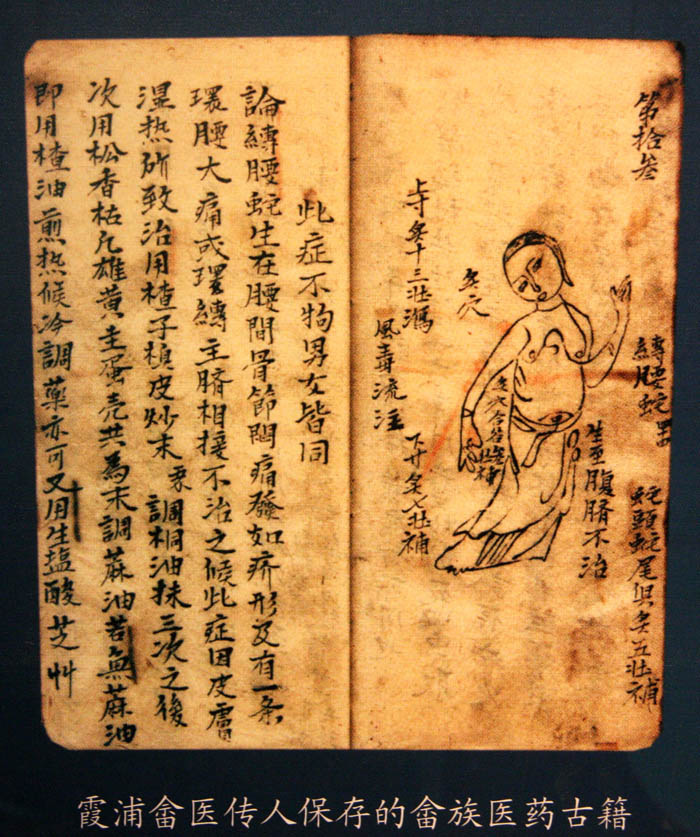 第拾叁
纏腰蛇
蛇頭蛇尾俱灸五壮補
生至腹臍不治
灸穴
上寸灸十三壮瀉
風毒流注
下廾灸七壮補
此症不拘男女皆同
論纏腰蛇生在腰間骨節悶痛發如疥形及有一条
環腰大痛或環纏主臍相接不治之候此症因皮膚
湿热所致治用楂子楨皮炒末 調桐油抹三次之後
次用松香枯凡雄黄圭蛋壳共為末調蔴油若無蔴油
即用楂油煎热候冷調藥亦可又用生盐酸芝艸
霞浦畲医传人保存的畲族医药古籍